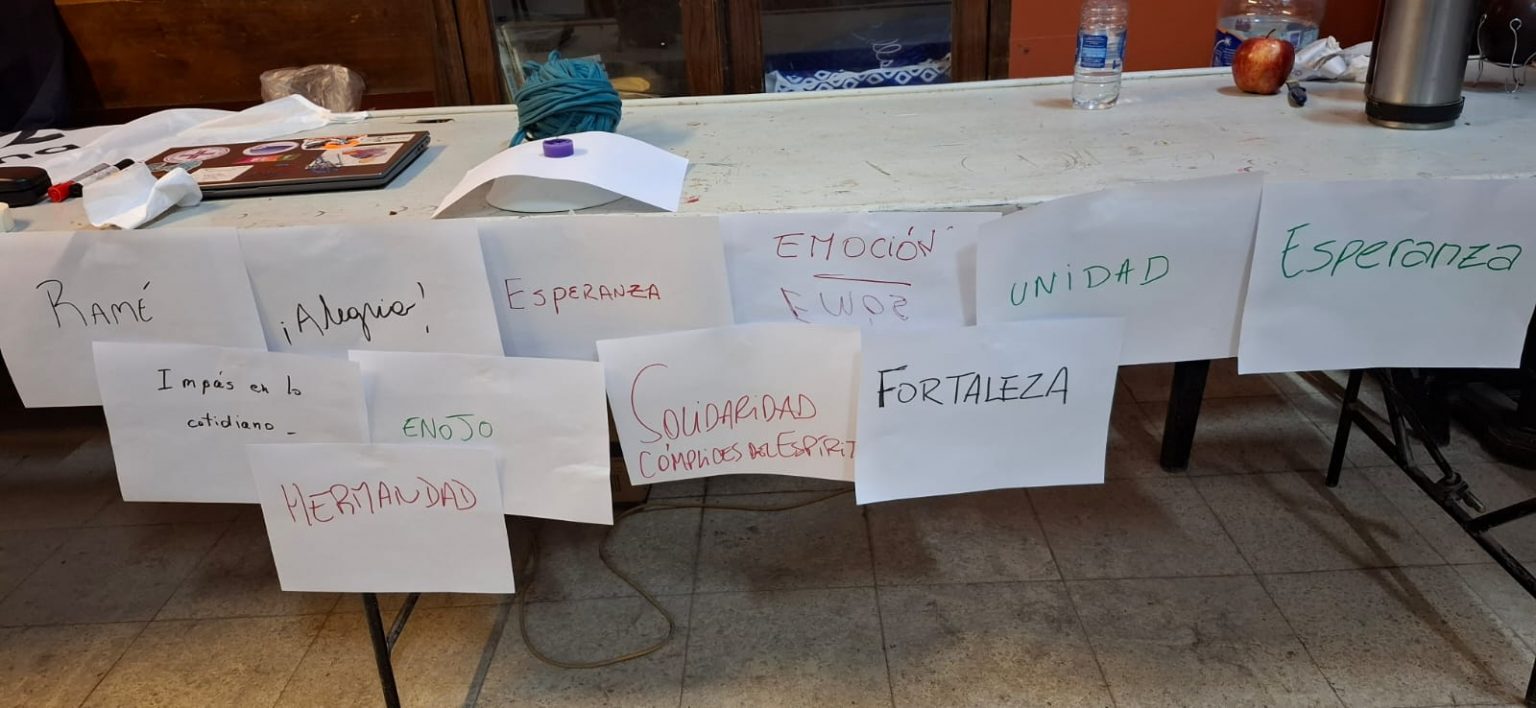 RAMÉ
¡Alegria!
ESPERANZA
EMOCIÓN
UNIDAD
Esperanza
Impás en lo
cotidiano_
ENOJO
SOLIDARIDAD
CÓMPLICES DEL ESPÍRIT
FORTALEZA
HERMANDAD